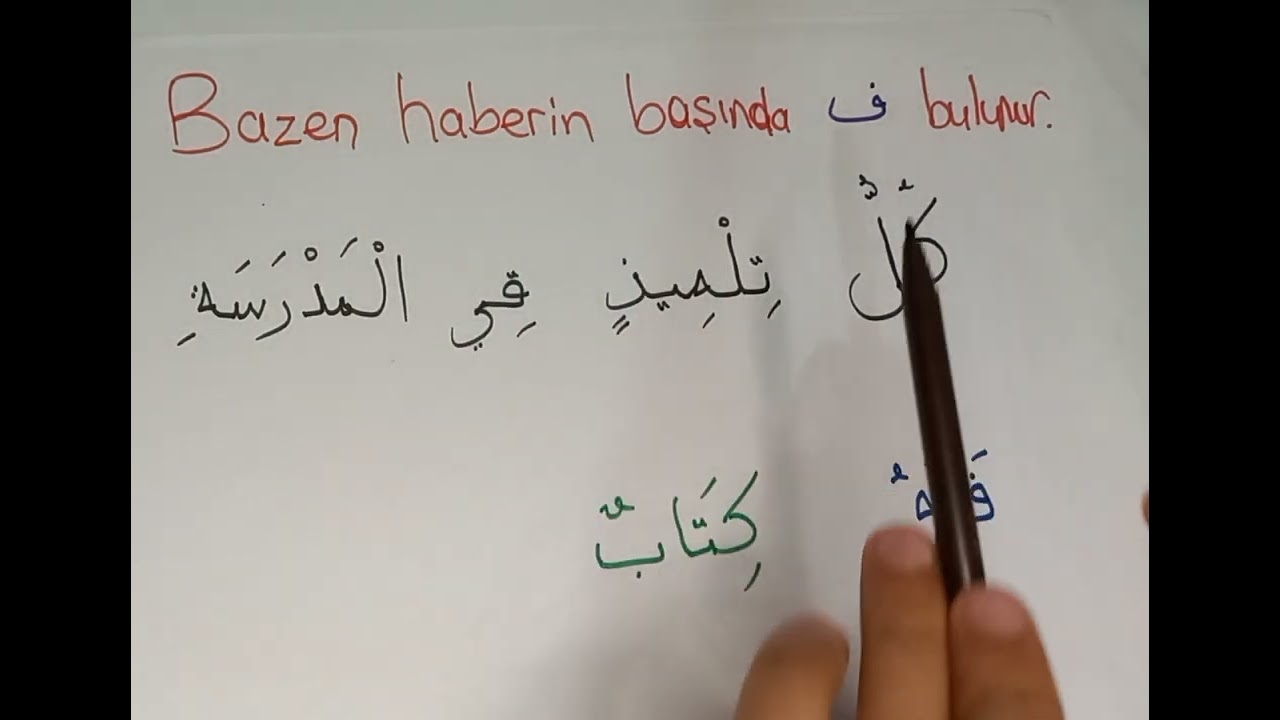 Bazen haberin başında ف bulunur.
كُلُّ تِلْمِيذٍ فِي الْمَدْرَسَةِ
كِتَابٌ